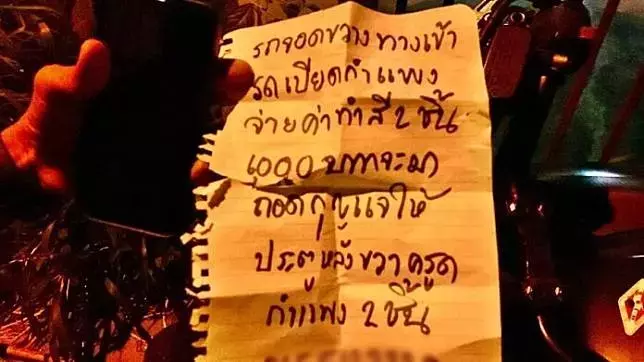 รถจอดขวางทางเข้า
รูดเบียดกำแพง
จ่ายค่าทำสี 2 ชิ้น
1,000 บาทจะมา
ถอดกุญแจให้
ประตูหลังขวาครูด
กำแพง 2 ชิ้น